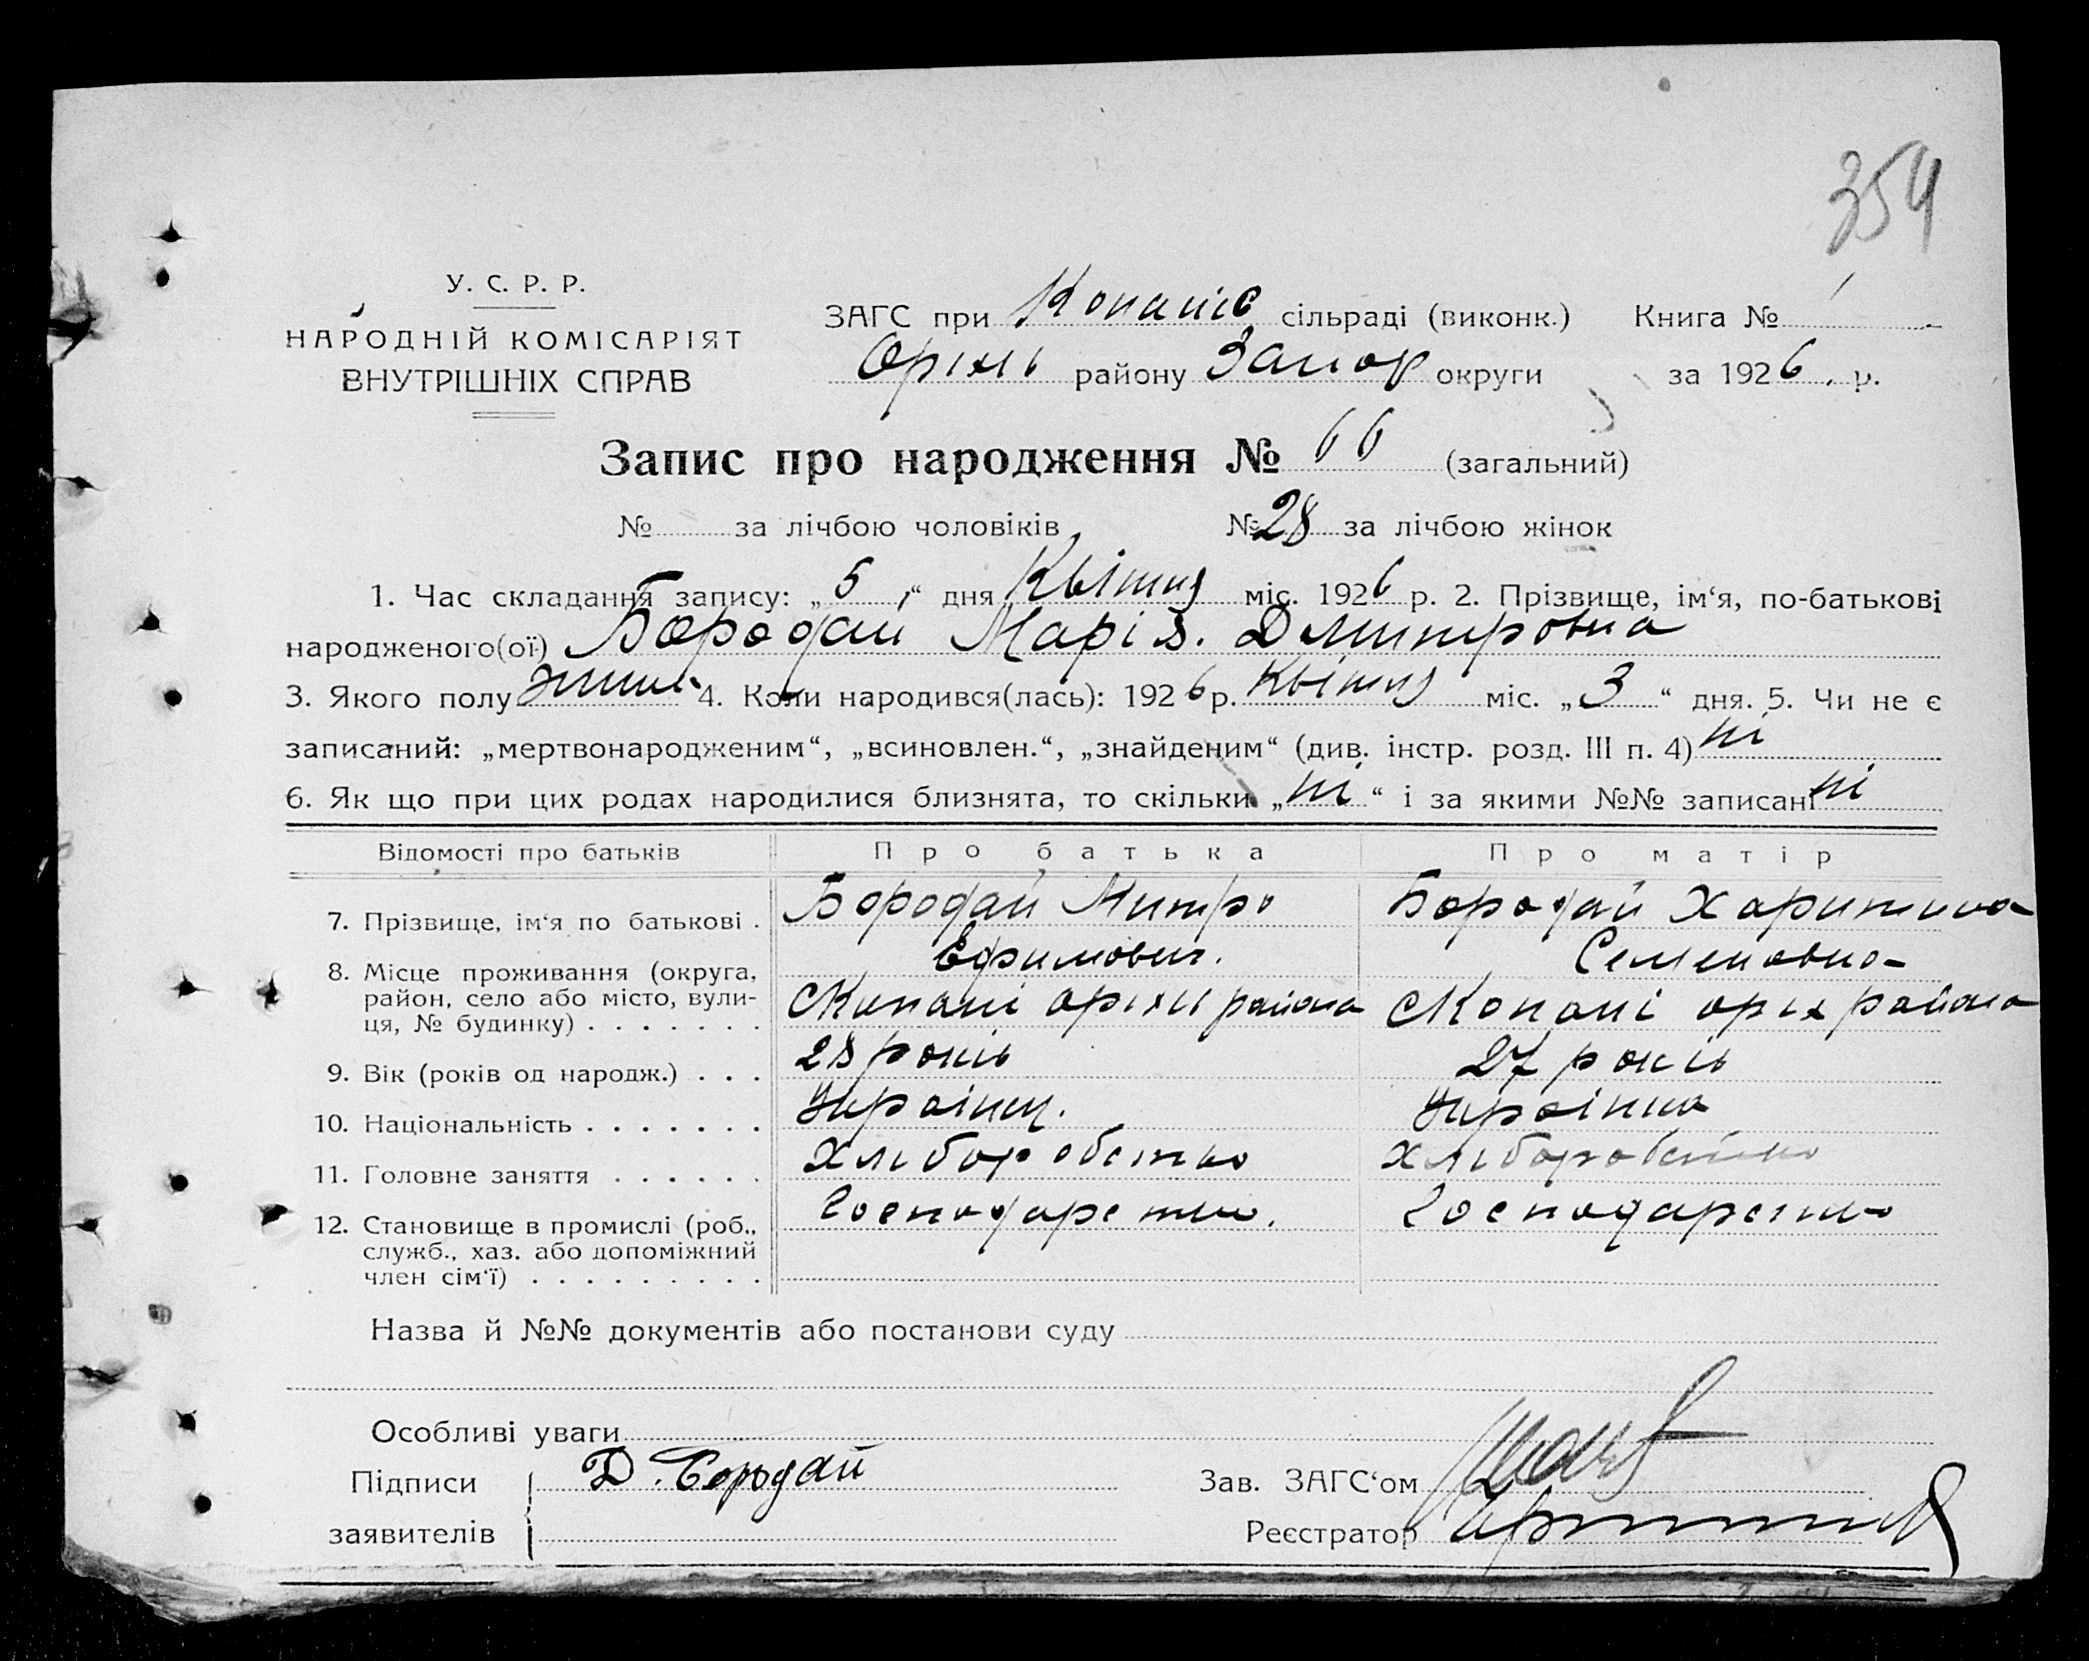 354
У. С. Р. Р.
НАРОДНІЙ КОМІСАРІЯТ
ВНУТРІШНІХ СПРАВ
ЗАГС при Копанів сільраді (виконк.) Книга №
Оріхів району Запор округи за 1926 р.
Запис про народження № 66 (загальний)
№ за лічбою чоловіків № 28 за лічбою жінок
1. Час складання запису: „5“ дня Квітня міс. 1926 р. 2. Прізвище, ім‘я, по-батькові
народженого(ої) Бородай Марія. Дмитровна
3. Якого полу 4. Коли народився(лась): 1926 р. Квітня міс. „3“ дня. 5. Чи не є
записаний: „мертвонародженим“, „всиновлен.“, „знайденим“ (див. інстр. розд. III п. 4) ні
6. Як що при цих родах народилися близнята, то скільки „ні“ і за якими №№ записані ні
Відомості про батьків Про батька Про матір
7. Прізвище, ім‘я по батькові . Бородай Митро Ефимович. Бородай Харитина Семеновна
8. Місце проживання (округа,
район, село або місто, вули-
ця, № будинку) . . . . . . . с Копані оріхи района с Копані оріх района
9. Вік (років од народж.) . . . 28 років 27 років
10. Національність . . . . . . . Украінец. Украінка
11. Головне заняття . . . . . . Хліборобство хліборобство
12. Становище в промислі (роб.,
служб., хаз. або допоміжний
член сім‘ї) . . . . . . . . . Господарство. Господарство
Назва й №№ документів або постанови суду
Особливі уваги
Підписи
заявителів
Д. Бородай
Зав. ЗАГС‘ом
Реєстратор